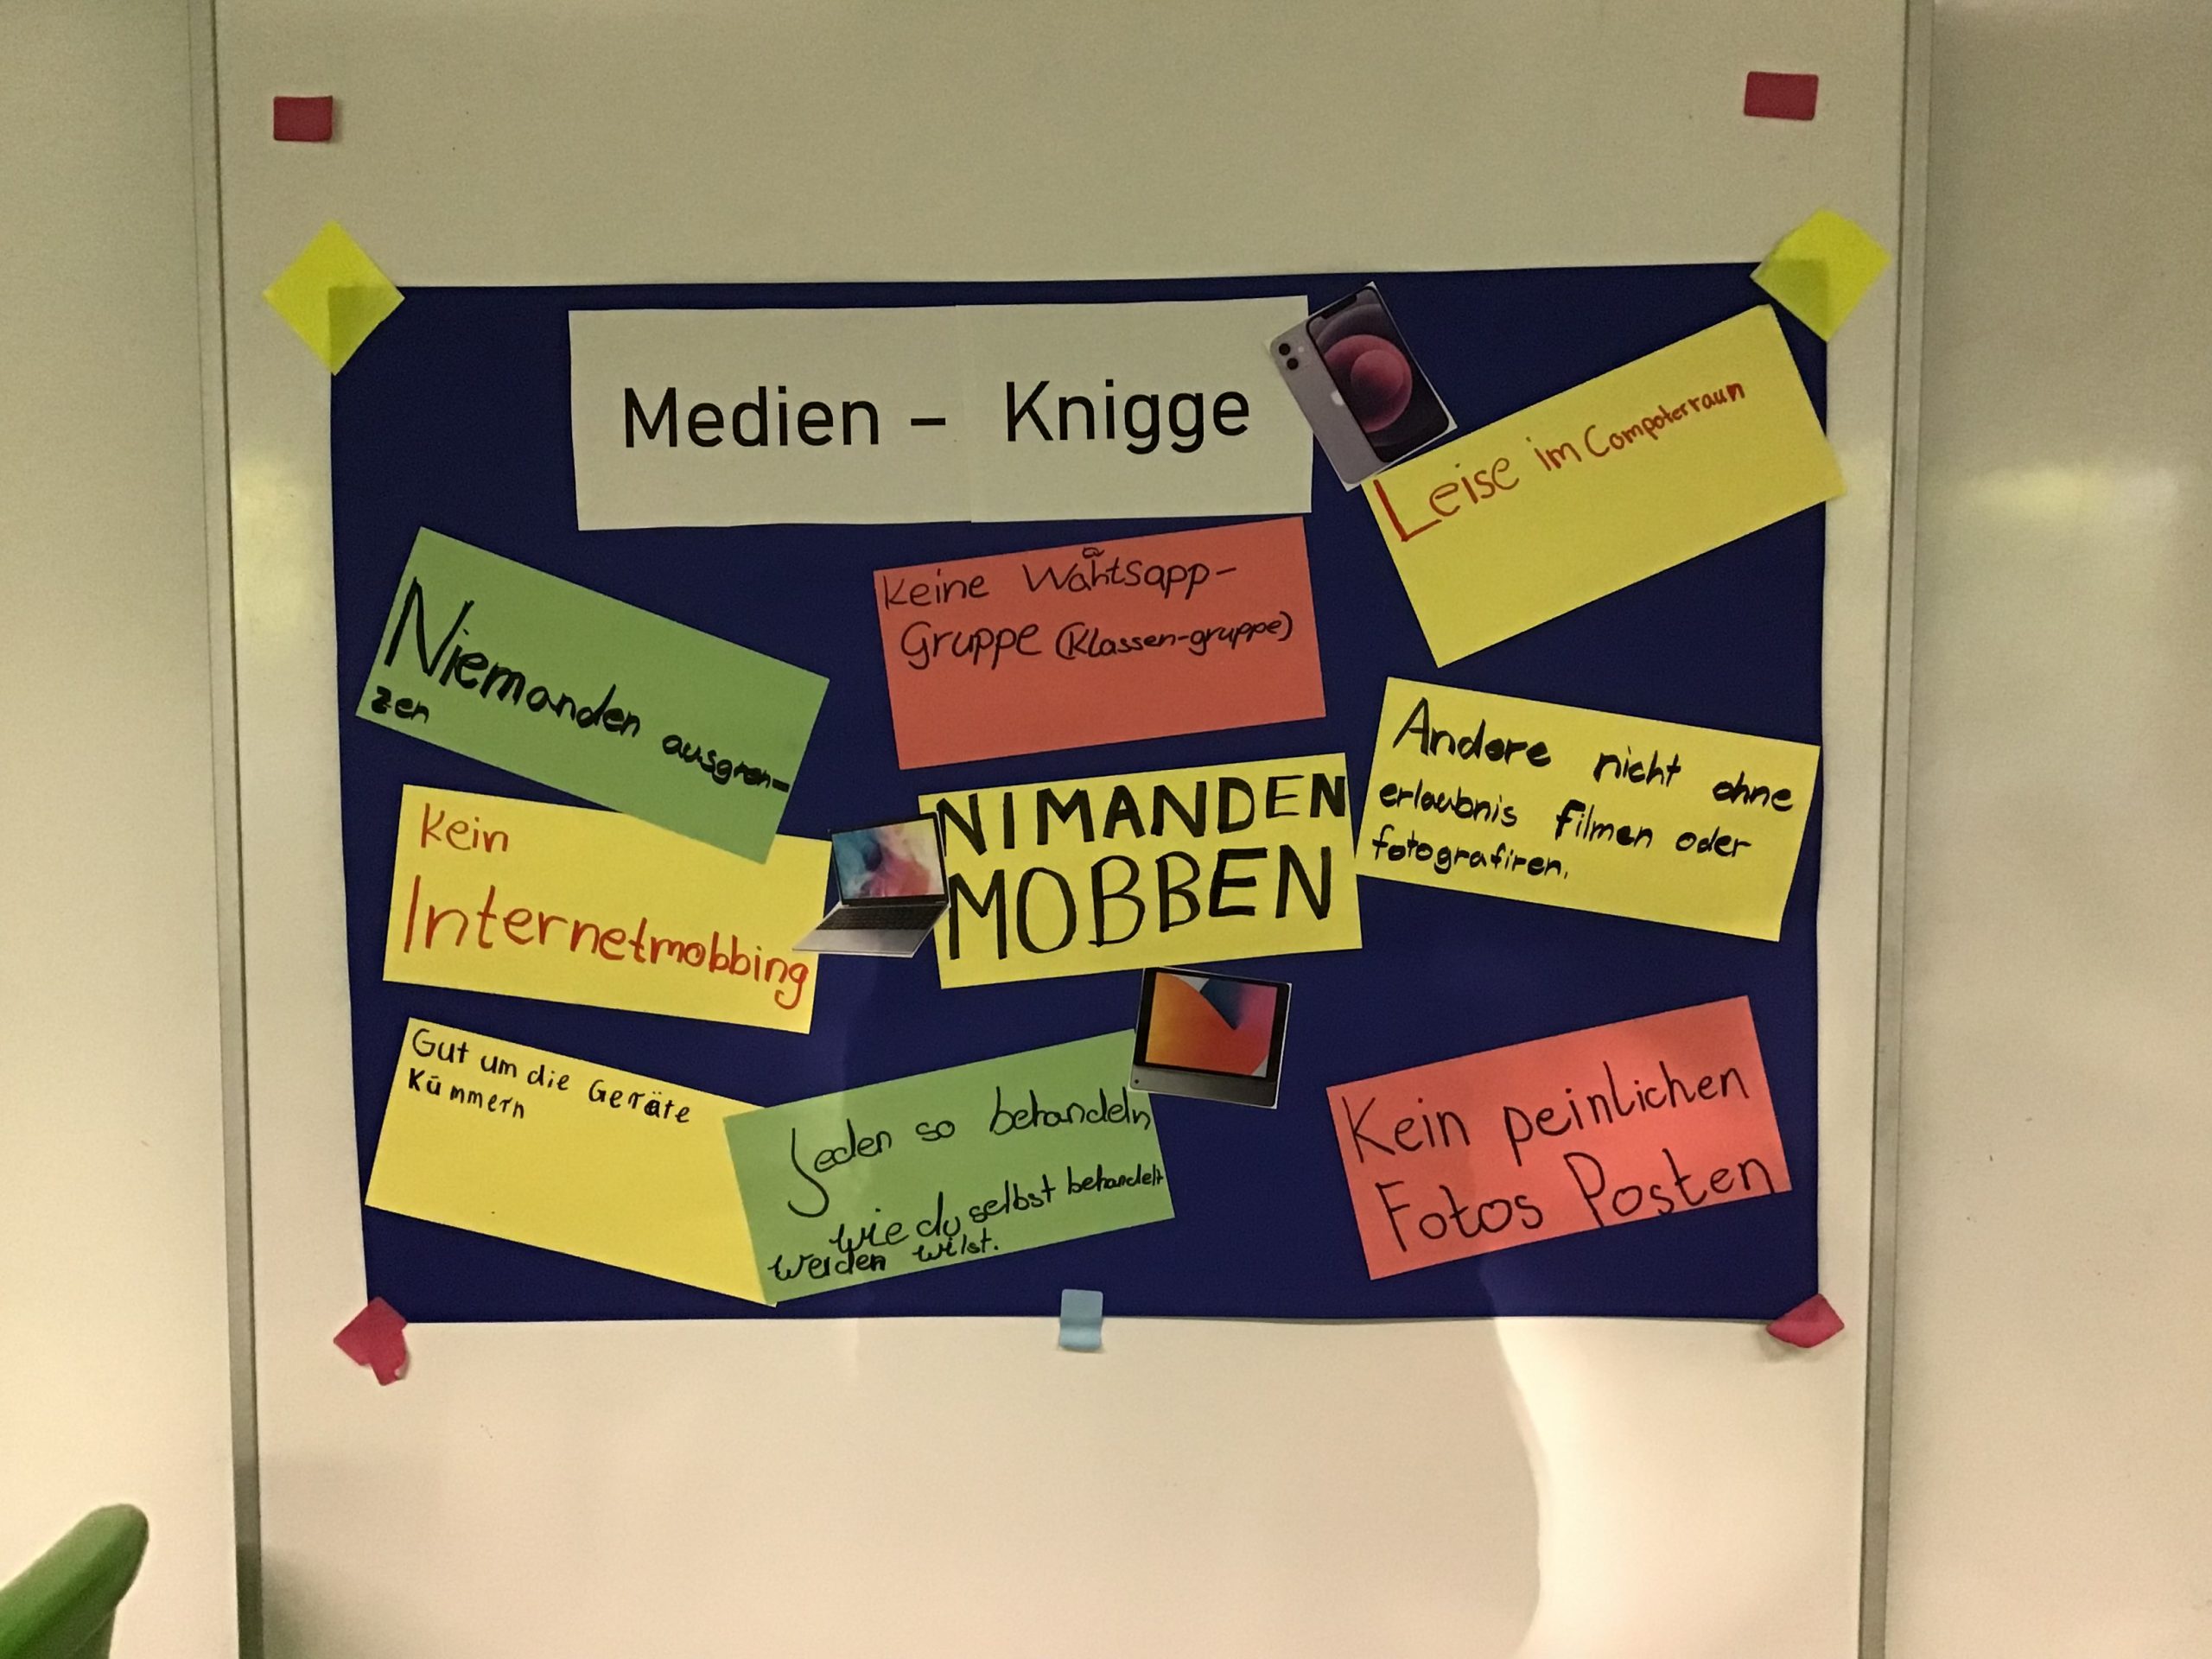 Medien - Knigge
Leise im Compoterraum
Keine Wahtsapp-
Gruppe (Klassen-gruppe)
Niemanden ausgren-
zen
Andere nicht ohne
erlaubnis filmen oder
fotografiren.
NIMANDEN
MOBBEN
Kein
Internetmobbing
Gut um die Geräte
Kümmern
Jeden so behandeln
wie du selbst behandelt
werden wilst.
Kein peinlichen
Fotos Posten